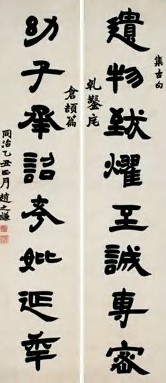 集古句
遺物致耀至誠專密
乾鑿度
倉頡篇
幼子承詔考妣延年
同治乙丑四月趙之謙